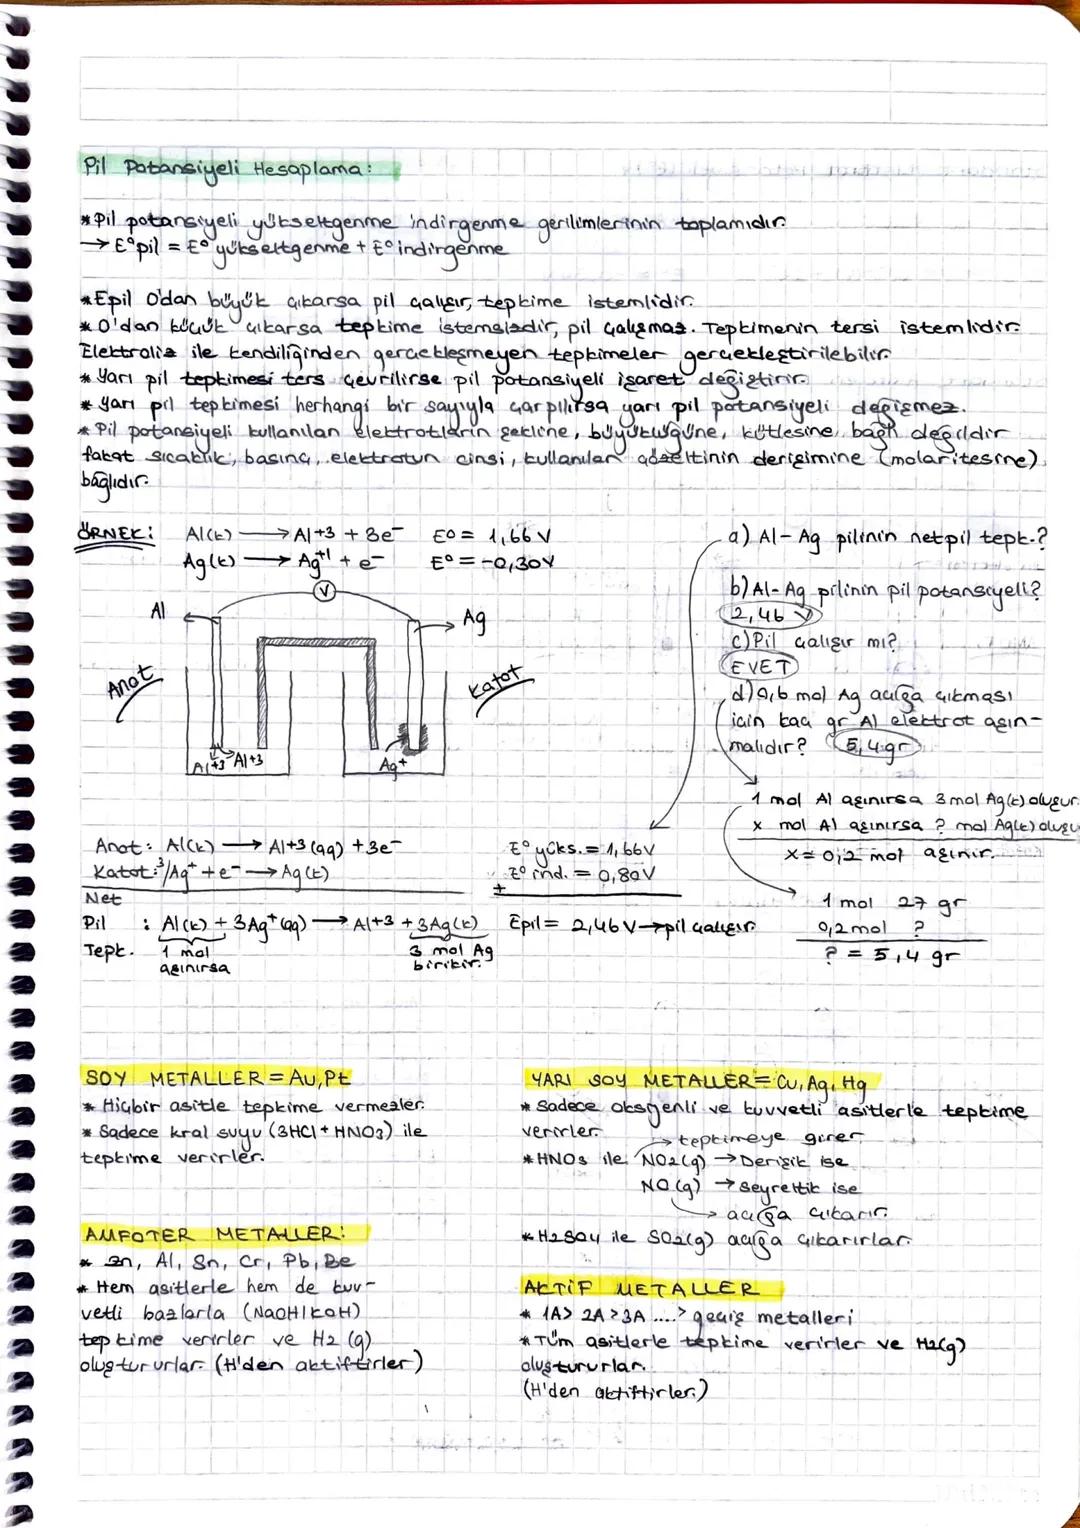 Pil Potansiyeli Hesaplama:
*Pil potansiyeli yükseltgenme indirgenme gerilimlerinin toplamıdır.
→ E°pil = E° yükseltgenme + E° indirgenme
*Epil 0'dan büyük çıkarsa pil çalışır, tepkime istemlidir.
* 0'dan küçük çıkarsa tepkime istemsizdir, pil çalışmaz. Tepkimenin tersi istemlidir.
Elektroliz ile kendiliğinden gerçekleşmeyen tepkimeler gerçekleştirilebilir.
* Yarı pil tepkimesi ters çevrilirse pil potansiyeli işaret değiştirir.
* Yarı pil tepkimesi herhangi bir sayıyla çarpılırsa yarı pil potansiyeli değişmez.
* Pil potansiyeli kullanılan elektrotların şekline, büyüklüğüne, kütlesine bağlı değildir
fakat sıcaklık, basınç, elektrotun cinsi, kullanılan çözeltinin derişimine (molaritesine)
bağlıdır.
ÖRNEK: Al(k) → Al+3 + 3e- E° = 1,66 V
Ag(k) → Ag+1 + e- E° = -0,80V
V
Al
Ag
Anot
Katot
Al+3
Al+3
Ag+
a) Al-Ag pilinin net pil tepk.?
b) Al-Ag pilinin pil potansiyeli?
2,46 V
c) Pil çalışır mı?
EVET
d) 0,6 mol Ag açığa çıkması
için kaç gr Al elektrot aşın-
malıdır? 5,4 gr
1 mol Al aşınırsa 3 mol Ag(k) oluşur.
x mol Al aşınırsa ? mol Ag(k) oluşu
x = 0,2 mol aşınır.
1 mol 27 gr
0,2 mol ?
? = 5,4 gr
Anot: Al(k) → Al+3 (aq) + 3e- E° yüks. = 1,66V
Katot: 3/ Ag+ + e- → Ag(k) E° ind. = 0,80V
+
Net
Pil : Al(k) + 3Ag+(aq) → Al+3 + 3Ag(k) Epil = 2,46 V → pil çalışır.
Tepk. 1 mol 3 mol Ag
aşınırsa birikir.
SOY METALLER = Au, Pt
* Hiçbir asitle tepkime vermezler.
* Sadece kral suyu (3HCl + HNO3) ile
tepkime verirler.
YARI SOY METALLER = Cu, Ag, Hg
* Sadece oksijenli ve kuvvetli asitlerle tepkime
verirler.
→ tepkimeye girer
* HNO3 ile NO2(g) → Derişik ise
NO (g) → seyreltik ise
→ açığa çıkarır.
* H2SO4 ile SO2(g) açığa çıkarırlar.
AMFOTER METALLER:
* Zn, Al, Sn, Cr, Pb, Be
* Hem asitlerle hem de kuv-
vetli bazlarla (NaOH/KOH)
tepkime verirler ve H2 (g)
oluştururlar. (H'den aktiftirler)
AKTİF METALLER
* 1A> 2A >3A ....> geçiş metalleri
* Tüm asitlerle tepkime verirler ve H2(g)
oluştururlar.
(H'den aktiftirler.)